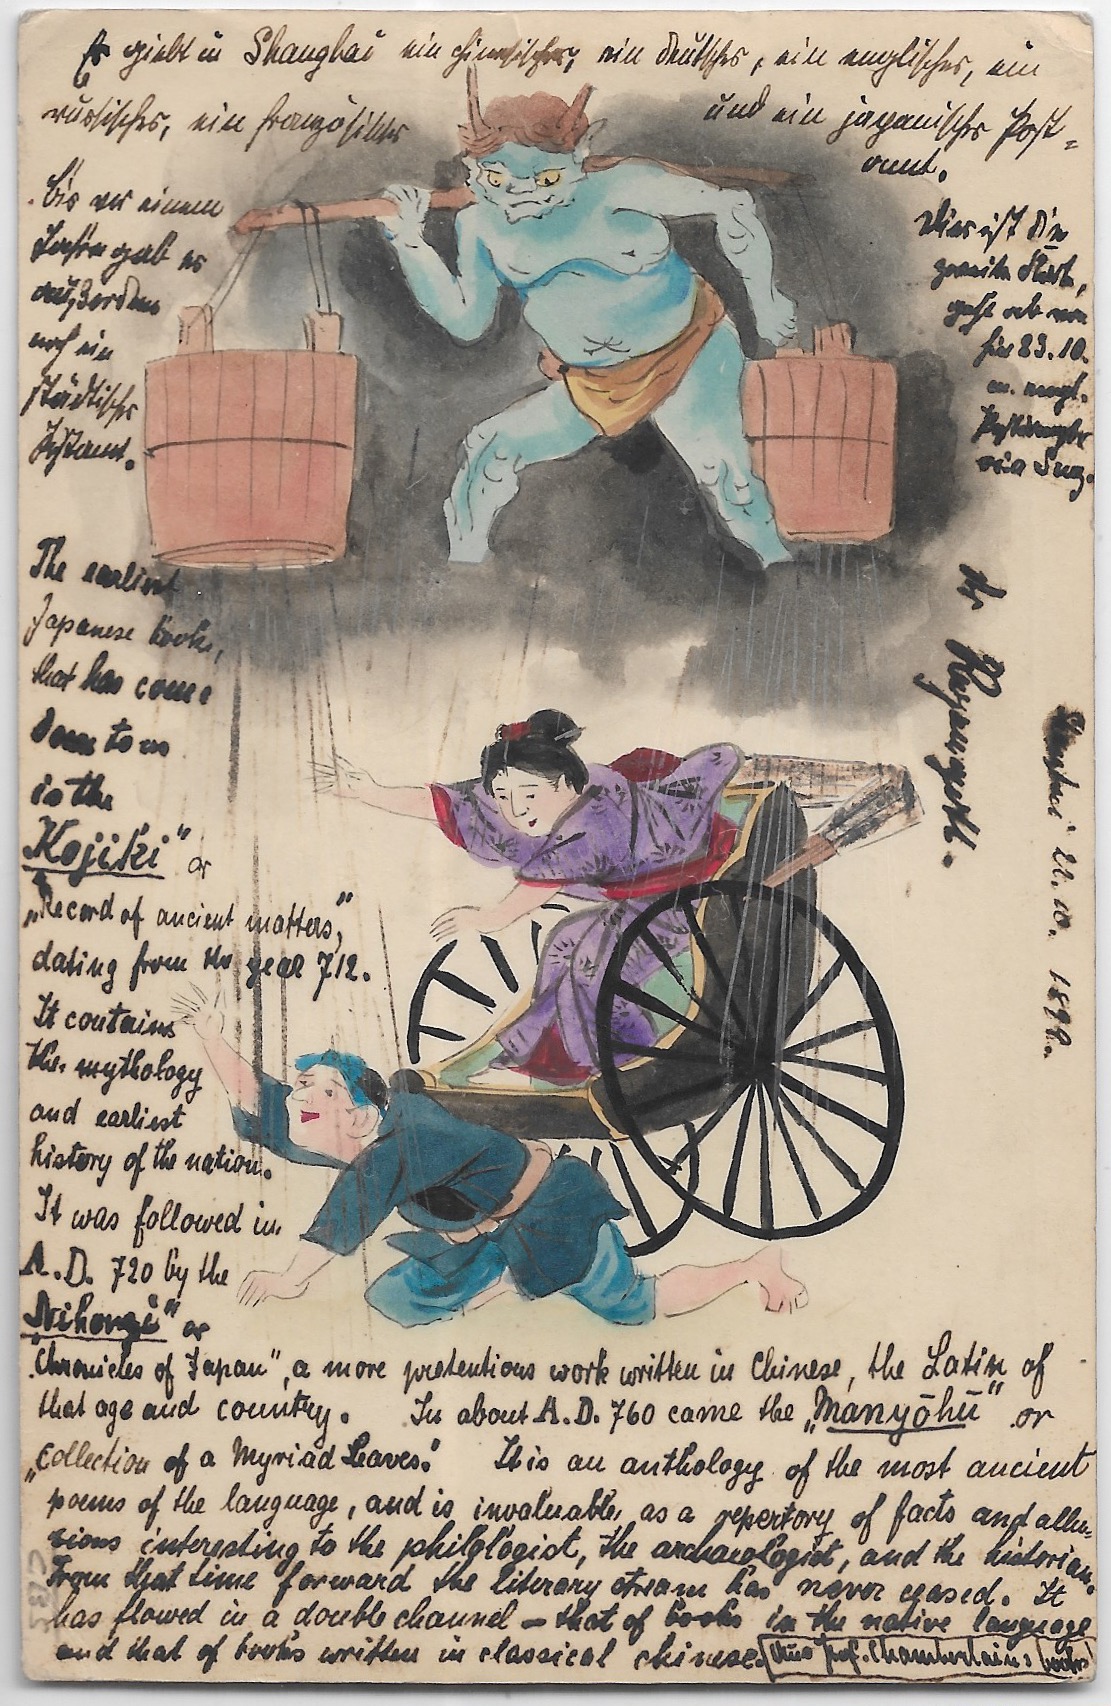 Es giebt in Shanghai ein chinesisches, ein deutsches, ein englisches, ein
russisches, ein französisches
und ein japanisches Post-
amt.
Bis vor einem
Jahre gab es
außerdem
noch ein
städtisches
Postamt.
Dies ist die
zweite Karte,
geht ab von
hier 23.10.
m. engl.
via Suez.
The earliest
Japanese book,
that has come
down to us
is the
"Kojiki" or
„Record of ancient matters,"
dating from the year 712.
It contains
the mythology
and earliest
history of the nation.
It was followed in
A.D. 720 by the
„Nihongi" or
„Chronicles of Japan", a more pretentious work written in Chinese, the Latin of
that age and country. In about A.D. 760 came the „Manyōhū" or
„collection of a Myriad Leaves." It is an anthology of the most ancient
poems of the language, and is invaluable as a repertory of facts and allu-
sions interesting to the philologist, the archaeologist, and the historian.
From that time forward the literary stream has never ceased. It
has flowed in a double channel – that of books in the native language
and that of books written in classical chinese. Aus Prof. Chamberlain:
22.10.1898.